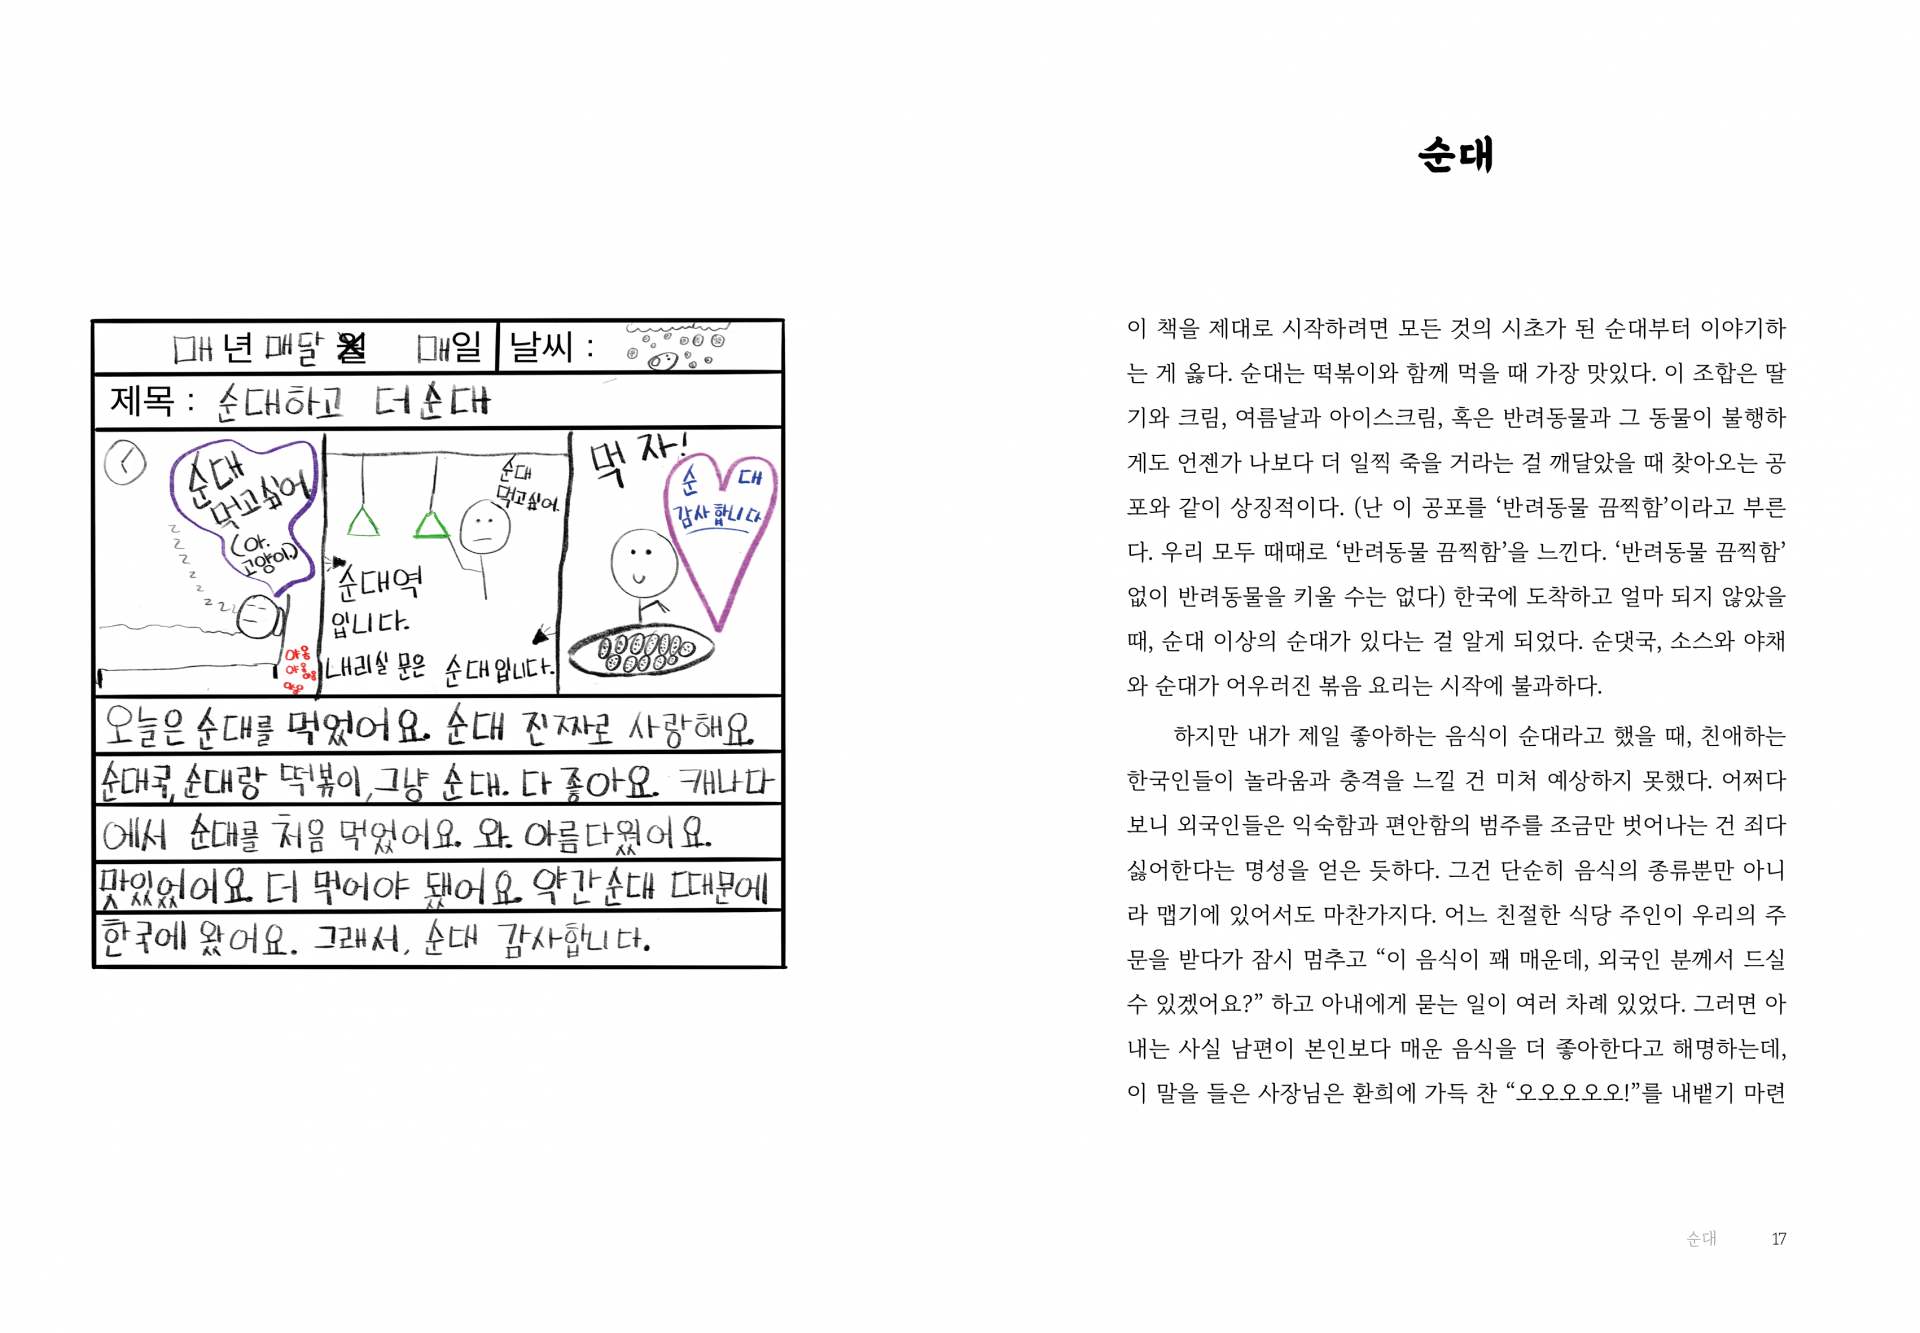 매년 매달 월 매일 날씨 :
제목 : 순대하고 더 순대
순대
먹고싶어
(아.
고양이.)
z z z z z z z z z
야옹
야옹
야옹
야옹
순대
먹고싶어.
순대역
입니다.
내리실 문은 순대입니다.
먹자!
순 대
감사합니다
오늘은 순대를 먹었어요. 순대 진짜로 사랑해요.
순대국, 순대랑 떡볶이, 그냥 순대. 다 좋아요. 캐나다
에서 순대를 처음 먹었어요. 와. 아름다웠어요.
맛있었어요. 더 먹어야 됐어요. 약간 순대 때문에
한국에 왔어요. 그래서, 순대 감사합니다.
순대
이 책을 제대로 시작하려면 모든 것의 시초가 된 순대부터 이야기하
는 게 옳다. 순대는 떡볶이와 함께 먹을 때 가장 맛있다. 이 조합은 딸
기와 크림, 여름날과 아이스크림, 혹은 반려동물과 그 동물이 불행하
게도 언젠가 나보다 더 일찍 죽을 거라는 걸 깨달았을 때 찾아오는 공
포와 같이 상징적이다. (난 이 공포를 ‘반려동물 끔찍함’이라고 부른
다. 우리 모두 때때로 ‘반려동물 끔찍함’을 느낀다. ‘반려동물 끔찍함’
없이 반려동물을 키울 수는 없다) 한국에 도착하고 얼마 되지 않았을
때, 순대 이상의 순대가 있다는 걸 알게 되었다. 순댓국, 소스와 야채
와 순대가 어우러진 볶음 요리는 시작에 불과하다.
하지만 내가 제일 좋아하는 음식이 순대라고 했을 때, 친애하는
한국인들이 놀라움과 충격을 느낄 건 미처 예상하지 못했다. 어쩌다
보니 외국인들은 익숙함과 편안함의 범주를 조금만 벗어나는 건 죄다
싫어한다는 명성을 얻은 듯하다. 그건 단순히 음식의 종류뿐만 아니
라 맵기에 있어서도 마찬가지다. 어느 친절한 식당 주인이 우리의 주
문을 받다가 잠시 멈추고 “이 음식이 꽤 매운데, 외국인 분께서 드실
수 있겠어요?” 하고 아내에게 묻는 일이 여러 차례 있었다. 그러면 아
내는 사실 남편이 본인보다 매운 음식을 더 좋아한다고 해명하는데,
이 말을 들은 사장님은 환희에 가득 찬 “오오오오오!”를 내뱉기 마련
순대 17